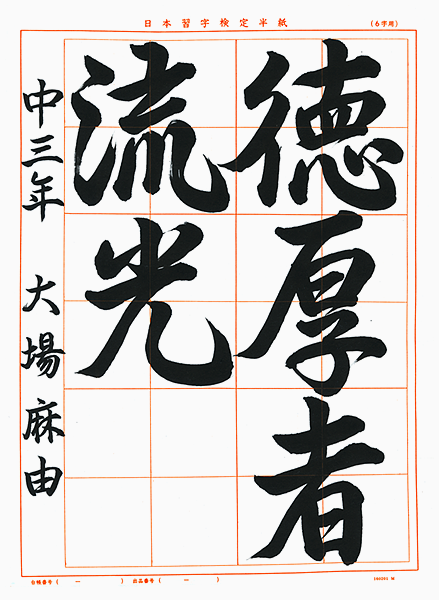 日本習字検定半紙
(6字用)
德厚者
流光
中三年 大場麻由
台帳番号( ー ) 出品番号( ー )